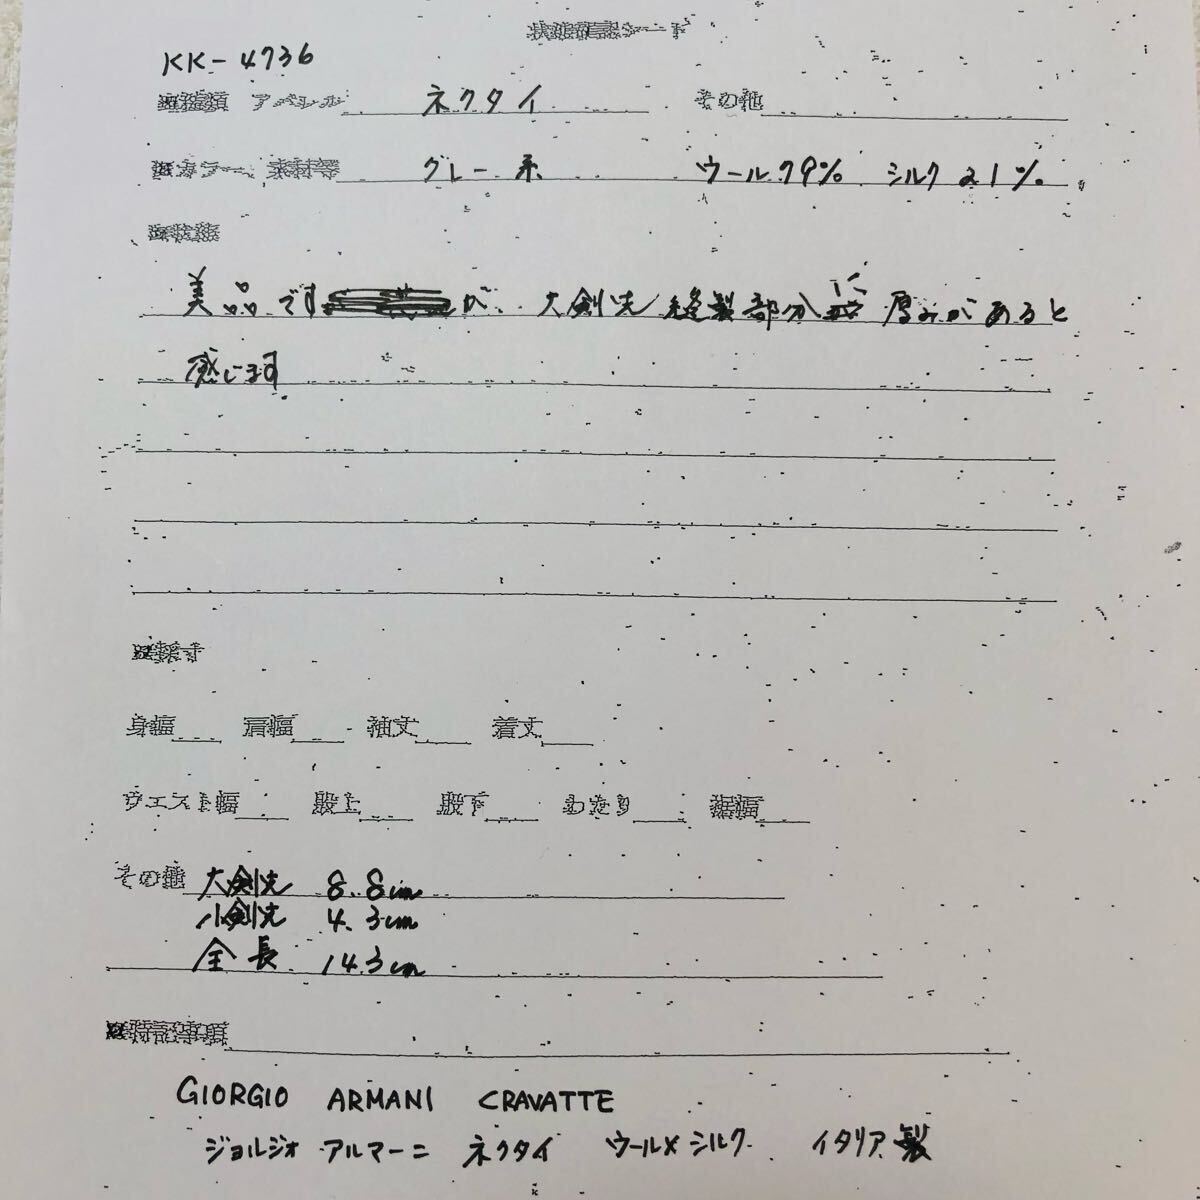 状態確認シート
KK-4736
※種類 アパレル ネクタイ その他
※カラー、素材等 グレー系 ウール79% シルク21%
※状態
美品ですが、大剣先縫製部分に厚みがあると
感じます
※採寸
身幅 肩幅 袖丈 着丈
ウエスト幅 股上 股下 わたり 裾幅
その他 大剣先 8.8cm
小剣先 4.3cm
全長 143cm
※特記事項
GIORGIO ARMANI CRAVATTE
ジョルジオ アルマーニ ネクタイ ウール×シルク イタリア製